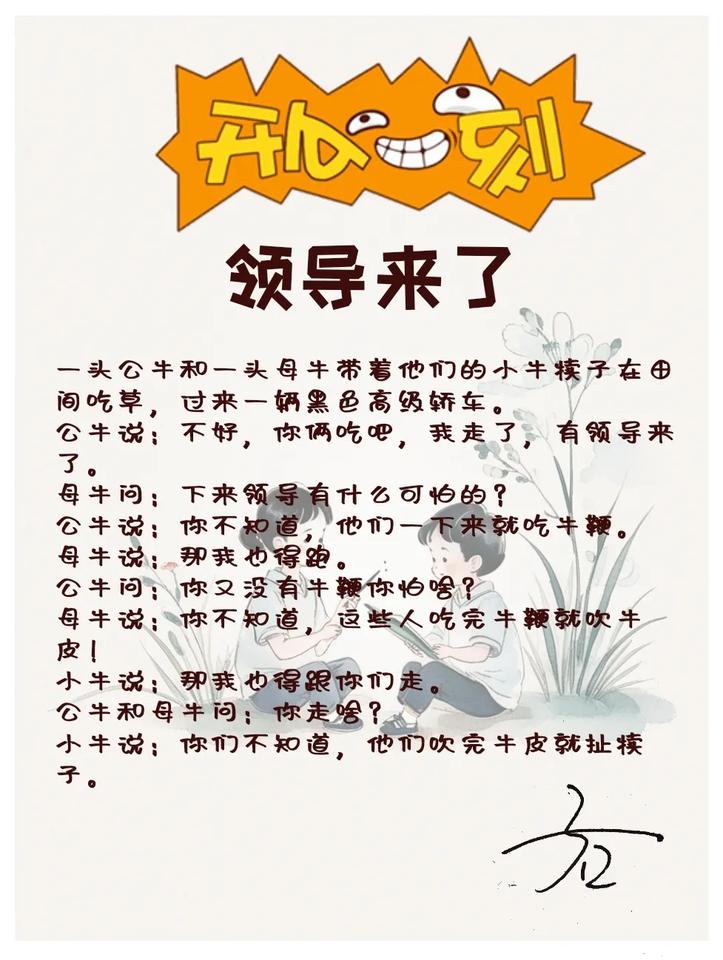 开心一刻
领导来了
一头公牛和一头母牛带着他们的小牛犊子在田
间吃草，过来一辆黑色高级轿车。
公牛说：不好，你俩吃吧，我走了，有领导来
了。
母牛问：下来领导有什么可怕的？
公牛说：你不知道，他们一下来就吃牛鞭。
母牛说：那我也得跑。
公牛问：你又没有牛鞭你怕啥？
母牛说：你不知道，这些人吃完牛鞭就吹牛
皮！
小牛说：那我也得跟你们走。
公牛和母牛问：你走啥？
小牛说：你们不知道，他们吹完牛皮就扯犊
子。